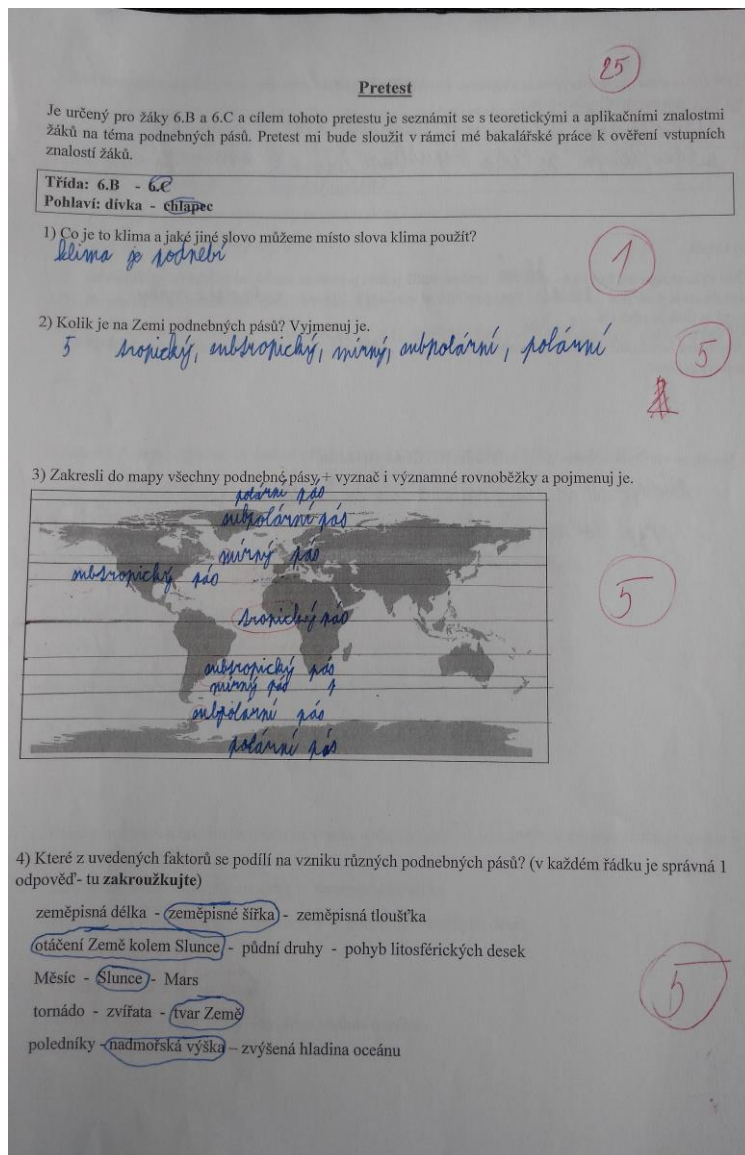 25
Pretest
Je určený pro žáky 6.B a 6.C a cílem tohoto pretestu je seznámit se s teoretickými a aplikačními znalostmi
žáků na téma podnebných pásů. Pretest mi bude sloužit v rámci mé bakalářské práce k ověření vstupních
znalostí žáků.
Třída: 6.B - 6.C
Pohlaví: dívka - chlapec
1) Co je to klima a jaké jiné slovo můžeme místo slova klima použít?
klima je podnebí
1
2) Kolik je na Zemi podnebných pásů? Vyjmenuj je.
5 tropický, subtropický, mírný, subpolární, polární
5
3) Zakresli do mapy všechny podnebné pásy, + vyznač i významné rovnoběžky a pojmenuj je.
polární pás
subpolární pás
mírný pás
subtropický pás
tropický pás
5
subtropický pás
mírný pás
subpolární pás
polární pás
4) Které z uvedených faktorů se podílí na vzniku různých podnebných pásů? (v každém řádku je správná 1
odpověď- tu zakroužkujte)
zeměpisná délka - zeměpisné šířka - zeměpisná tloušťka
otáčení Země kolem Slunce - půdní druhy - pohyb litosférických desek
Měsíc - Slunce - Mars
5
tornádo - zvířata - tvar Země
poledníky - nadmořská výška – zvýšená hladina oceánu